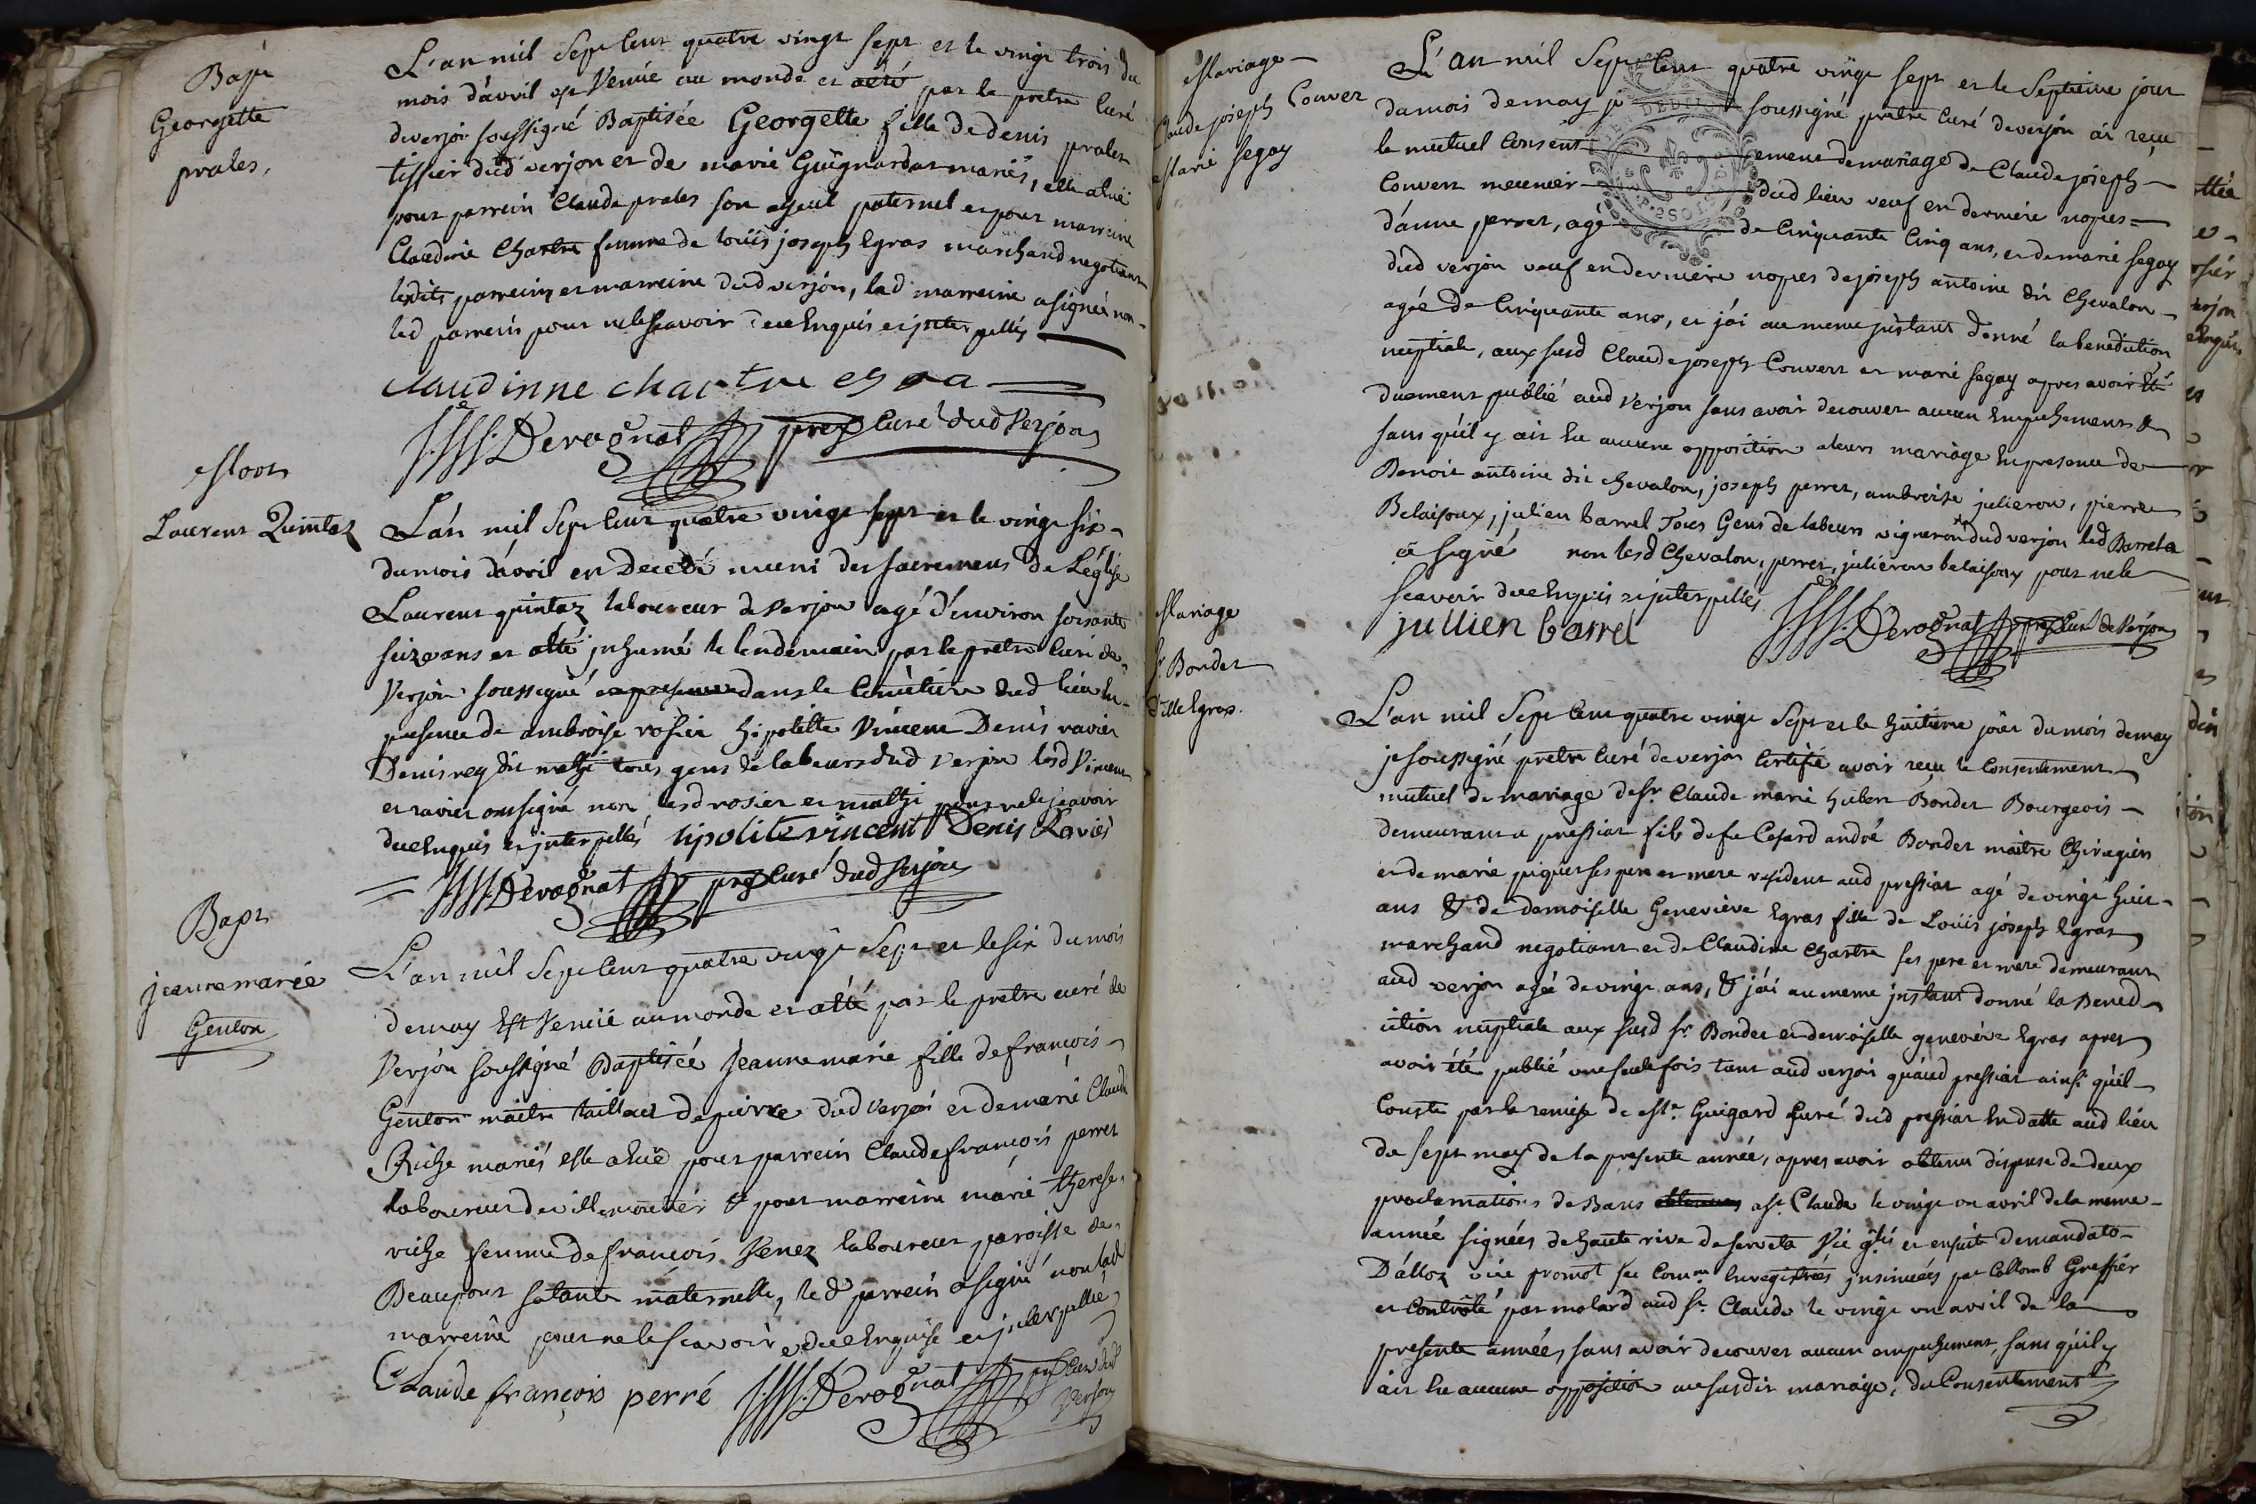 Bapt
Georgette
prales.
L'an mil Sept Cent quatre vingt sept et le vingt trois du
mois d'avril est Venüe au monde et aété par le pretre Curé
deverjon soussigné Baptisée Georgette fille de denis prales
tissier dud verjon et de marie Guignardat mariés, elle a hüe
pour parrein Claude prales son ayeul paternel et pour marreine
Claudine Chartre femme de Loüis joseph Egras marchand negotiant
lesdits parreing et marreine dud verjon, lad marreine a signée non
led parrein pour nelescavoir deceEnquis et jnterpellés
claudinne chartre
Derognat pretre Curé dud Verjon
Mort
Laurent Quintaz
L'an mil Sept Cent quatre vingt sept et le vingt six
dumois d'avril en Decedé muni des sacremens de L'église
Laurent quintaz laboureur de Verjon agé d'environ soixante
seize ans et atté jnhumé le lendemain par le pretre Curé de
Verjon soussigné dans le Cimetiere dud lieu En
presence de ambroise rosier hipolitte Vincent Denis ravier
Denis rey dit mathi tous gens de labeurs dud Verjon lesd Vincent
et ravier ontsigné non lesd rosier et mathi pour nelescavoir
deceEnquis et jnterpellés hipolite vincent Denis Raviér
Derognat pretre Curé dud Verjon
Bapt
jeanne mariée
Genton
L'an mil Sept Cent quatre vingt Sept et le six du mois
de may Est Venüe aumonde et atté par le pretre curé de
Verjon soussigné Baptisée Jeanne marie fille defrançois
Genton maitre tailleur depierre dud verjon et demarie Claude
Riche mariés elle a hüe pour parrein Claude françois perret
laboureur devillemoutier & pour marreine marie therese
riche femme de francois Venez laboureur paroisse de
Beaupont satante maternelle, led parrein a signé non lad
marreine pour nelescavoir deceEnquise et jnterpellée
Claude françois perré Derognat pretre Curé dud
Verjon
Mariage
Claude joseph Convert
Marie segay
L'an mil Sept Cent quatre vingt sept et le Septieme jour
dumois demay je soussigné pretre curé deverjon ai reçu
le mutuel Consentement demariage de Claude joseph
Convert meunier dud lieu veuf en derniere nopces
d'anne perret, agé de Cinquante Cinq ans, et demarie segay
dud verjon veuf en derniere nopces dejoseph antoine dit Chevalon
agée de Cinquante ans, et j'ai aumeme jnstant donné la benediction
nuptiale, aux susd Claude joseph Convert et marie segay apres avoir Eté
duement publié aud Verjon sans avoir decouvert aucun Empechement &
sans qu'il y ait hu aucune opposition aleurs mariage Enpresence de
Benoit antoine dit chevalon, joseph perret, ambroise julieron, pierre
Belaisoux, julien barrel Tous Gens de labeurs vigneron dud verjon led Barrel a
a signé non lesd Chevalon, perret, julieron belaisoux pour nele
scavoir deceEnquis et jnterpellés
jullien barrel Derognat pretre Curé de Verjon
Mariage
Sr Bondet
Dlle Egras.
L'an mil Sept Cent quatre vingt Sept et le huitieme jour dumois demay
je soussigné pretre curé deverjon Certifié avoir reçu le Consentement
mutuel de mariage desr Claude marie hubert Bondet Bourgeois
demeurant a pressiat fils defe Cesard andré Bondet maitre Chirugien
et de marie piquet ses pere et mere resident aud pressiat agé devingt huit
ans & de demoiselle Geneviève Egras fille de Loüis joseph Egras
marchand negotiant et de Claudine Chartre ses pere et mere demeurant
aud verjon agée devingt ans, & j'ai aumeme jnstant donné la Bened
iction nuptiale aux susd sr Bondet et demoiselle geneviève Egras apres
avoir été publié une seulefois tant aud verjon qu'aud pressiat ainsi qu'il
Conste par la remise de Mre Guigard Curé dud pressiat Endatte aud lieu
du sept may de la presente année, apres avoir obtenu dispense dedeux
proclamations de Bans a st Claude le vingt un avril de la meme
année signées de haute rive deserveta Vic gles et ensuite demandato
D'alloz vice promot sec Comm Enregistrées jnsinuées par Collomb Greffier
et Controlé par molard aud st Claude le vingt un avril de la
presente année, sans avoir decouvert aucun empechement, sans qu'il y
ait hu aucune opposition aususdit mariage, du Consentement